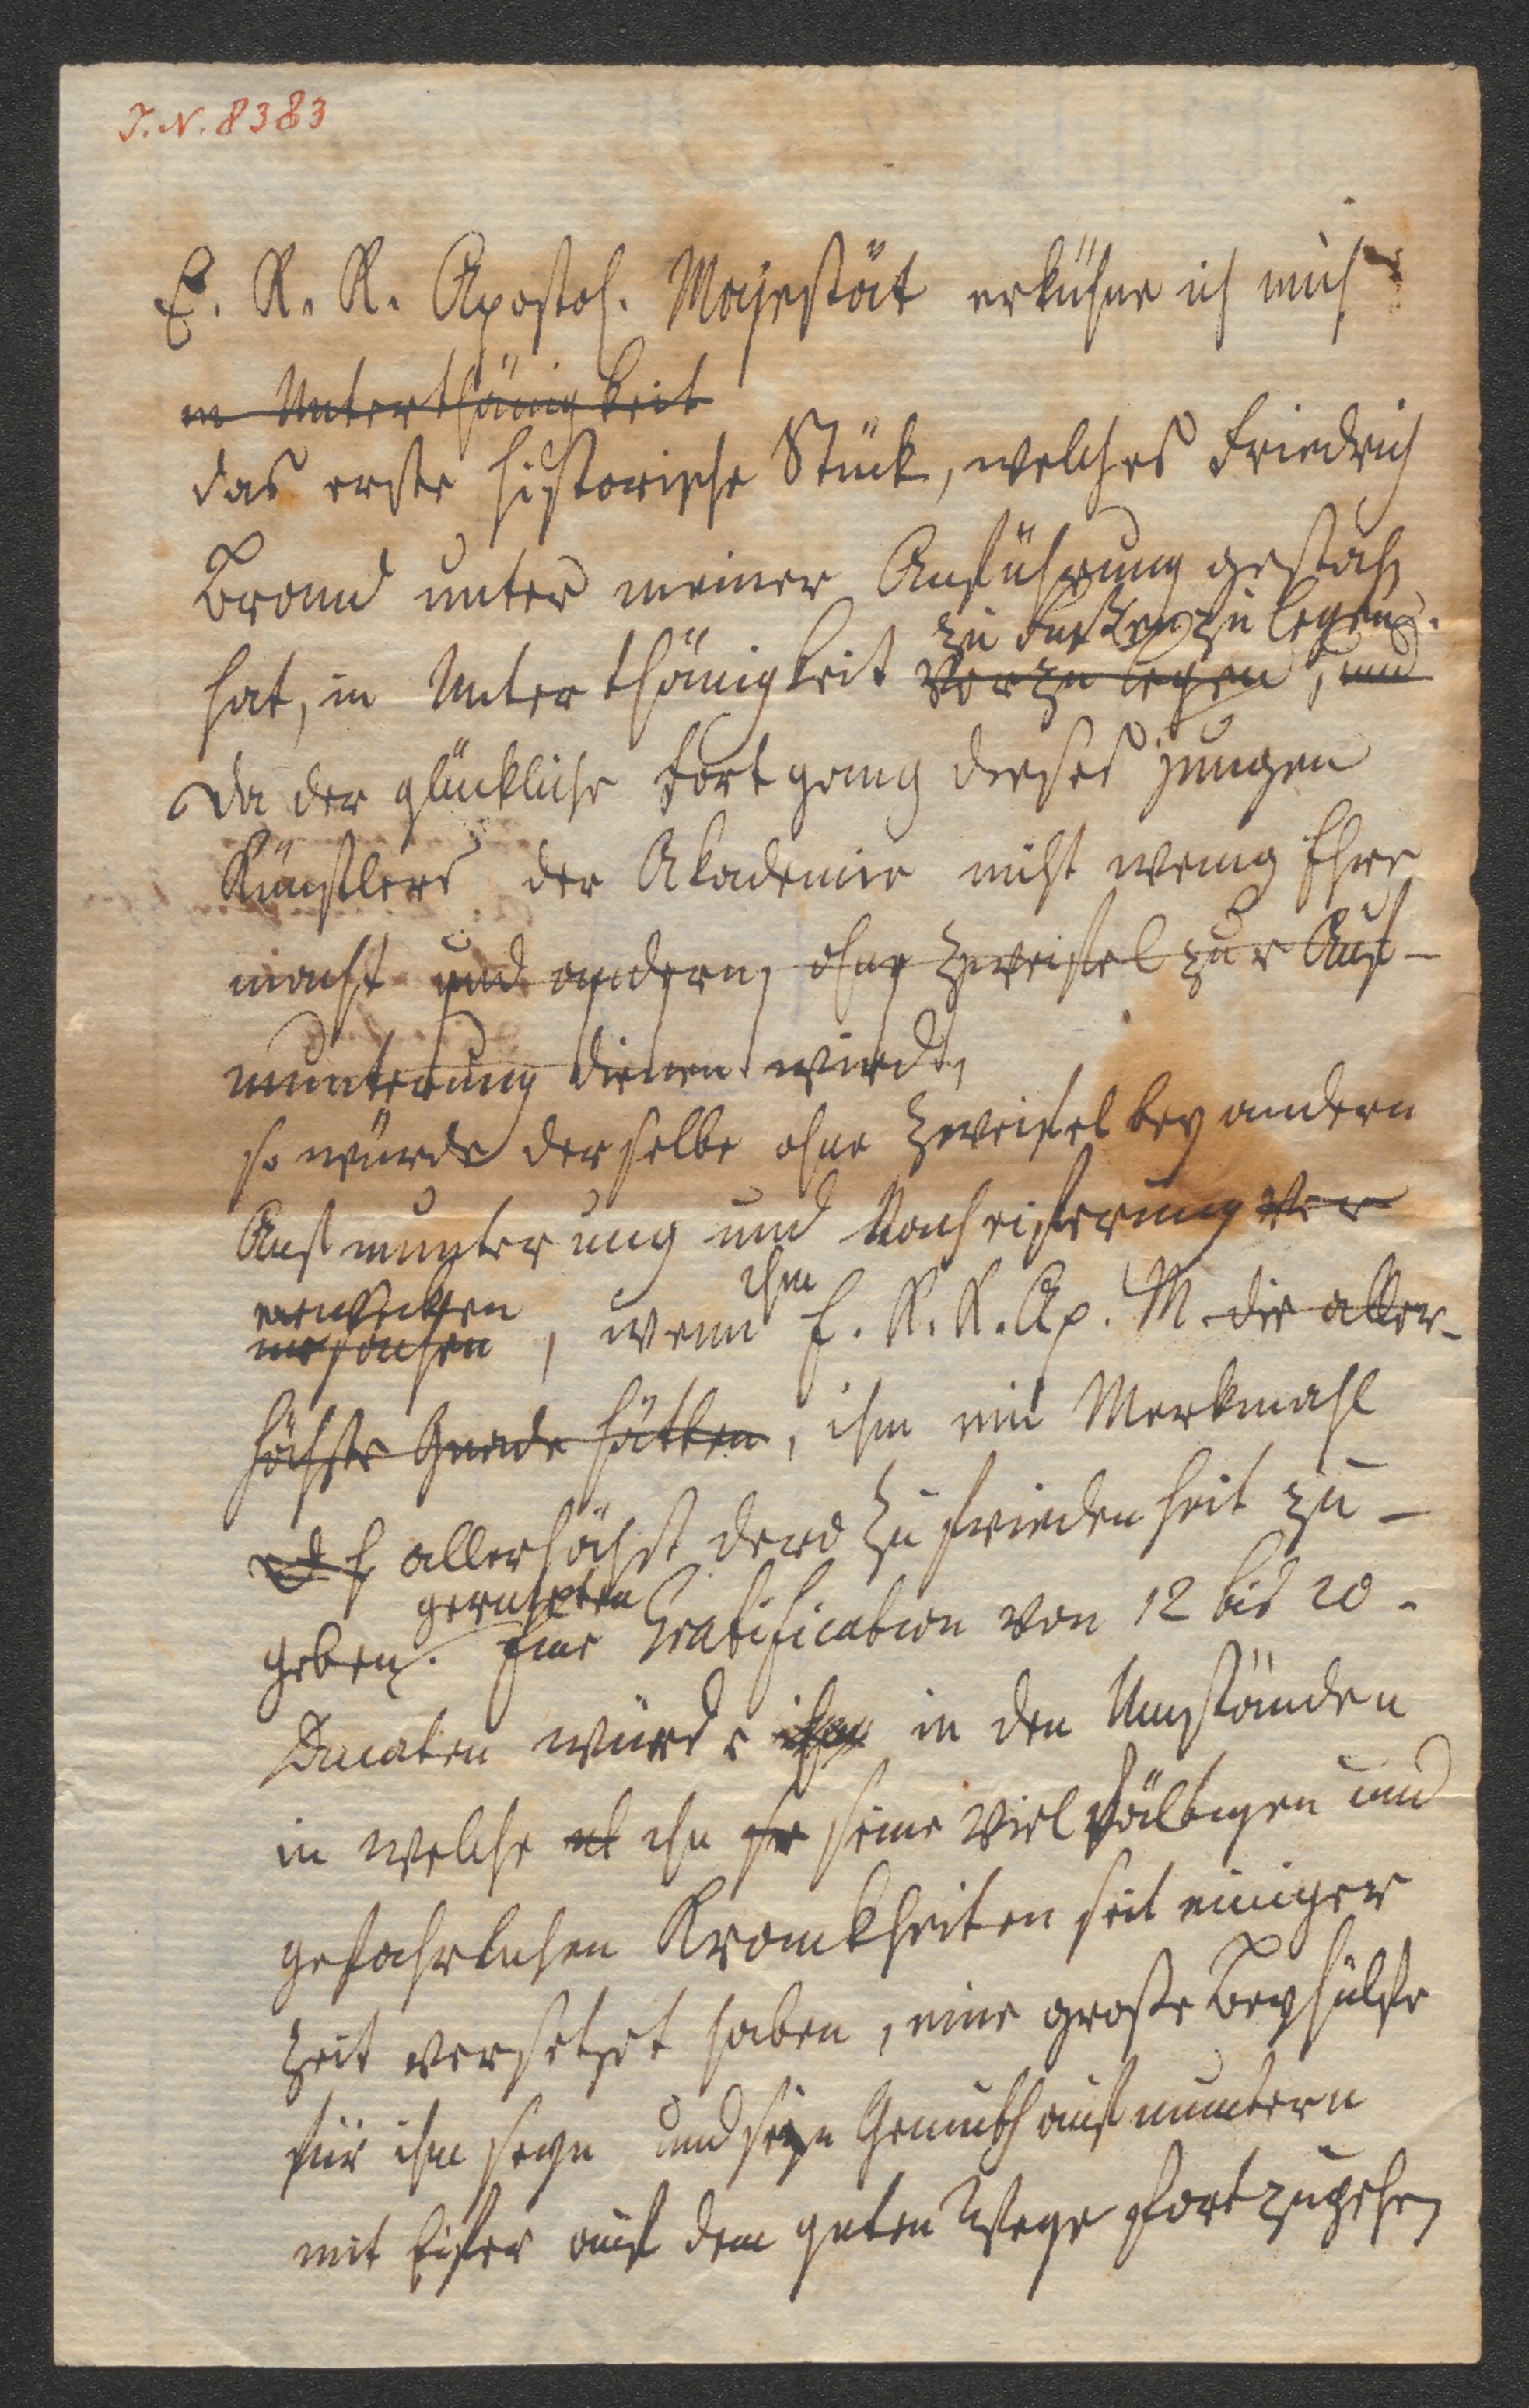 J. N. 8383
E. K. K. Apostol. Majestät erkühne ich mich
in Unterthänigkeit
das erste historische Stück, welches Friedrich
Brand unter meiner Anführung gestoch
zu Füßen zu legen.
hat, in Unterthänigkeit vorzulegen, und
Da der glückliche Fortgang dieses jungen
Künstlers der Akademie nicht wenig Ehre
macht und andern, ohne Zweifel zur Auf-
munterung dienen wird,
so würde derselbe ohne Zweifel bey andern
Aufmunterung und Nacheiferung ver
erwecken
ihm
, wenn E. K. K. Ap. M. die aller-
höchste Gnade hätten, ihm ein Merkmahl
allerhöchst dero Zufriedenheit zu-
geruheten
geben. Eine Gratification von 12 bis 20.
Ducaten würde ihm in den Umständen
in welche ihn seine vielfältigen und
gefahrlichen Krankheiten seit einiger
Zeit versetzet haben, eine große Beyhülfe
für ihn seyn und sein Gemüth aufmuntern
mit Eifer auf dem guten Wege fortzugehen